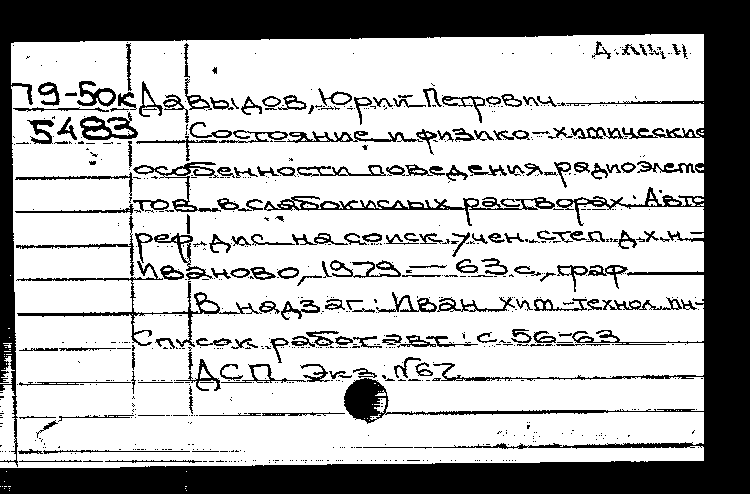 79-50к Давыдов, Юрий Петрович
5483 Состояние и физико-химические
особенности поведения радиоэлеме
тов в слабокислых растворах: Авто
реф. дис. на соиск. учен. степ. д.х.н.-
Иваново, 1979.- 63 с., граф
В надзаг: Иван хим.-технол. ин-
Список работ авт: с. 56-63
ДСП. Экз. №67